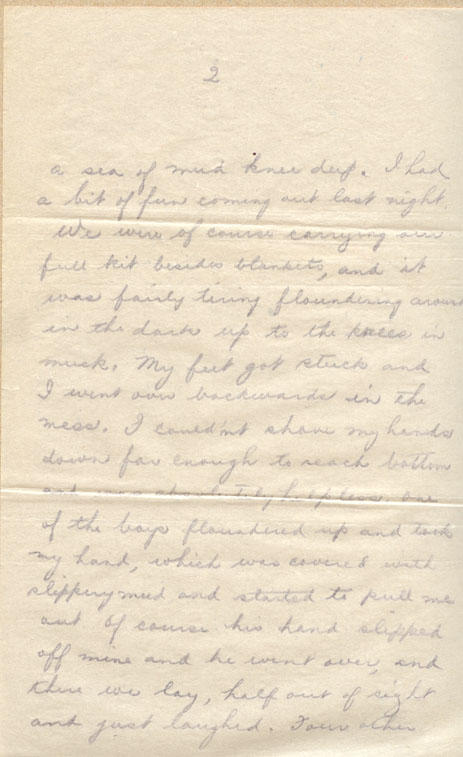 2
a sea of mud knee deep. I had
a bit of fun coming out last night.
We were of course carrying our
full kit besides blankets, and it
was fairly tiring floundering around
in the dark up to the knees in
muck. My feet got stuck and
I went over backwards in the
mess. I couldn't shove my hands
down far enough to reach bottom
and was absolutely helpless. One
of the boys floundered up and took
my hand, which was covered with
slippery mud and started to pull me
out of course his hand slipped
off mine and he went over, and
there we lay, half out of sight
and just laughed. Four other